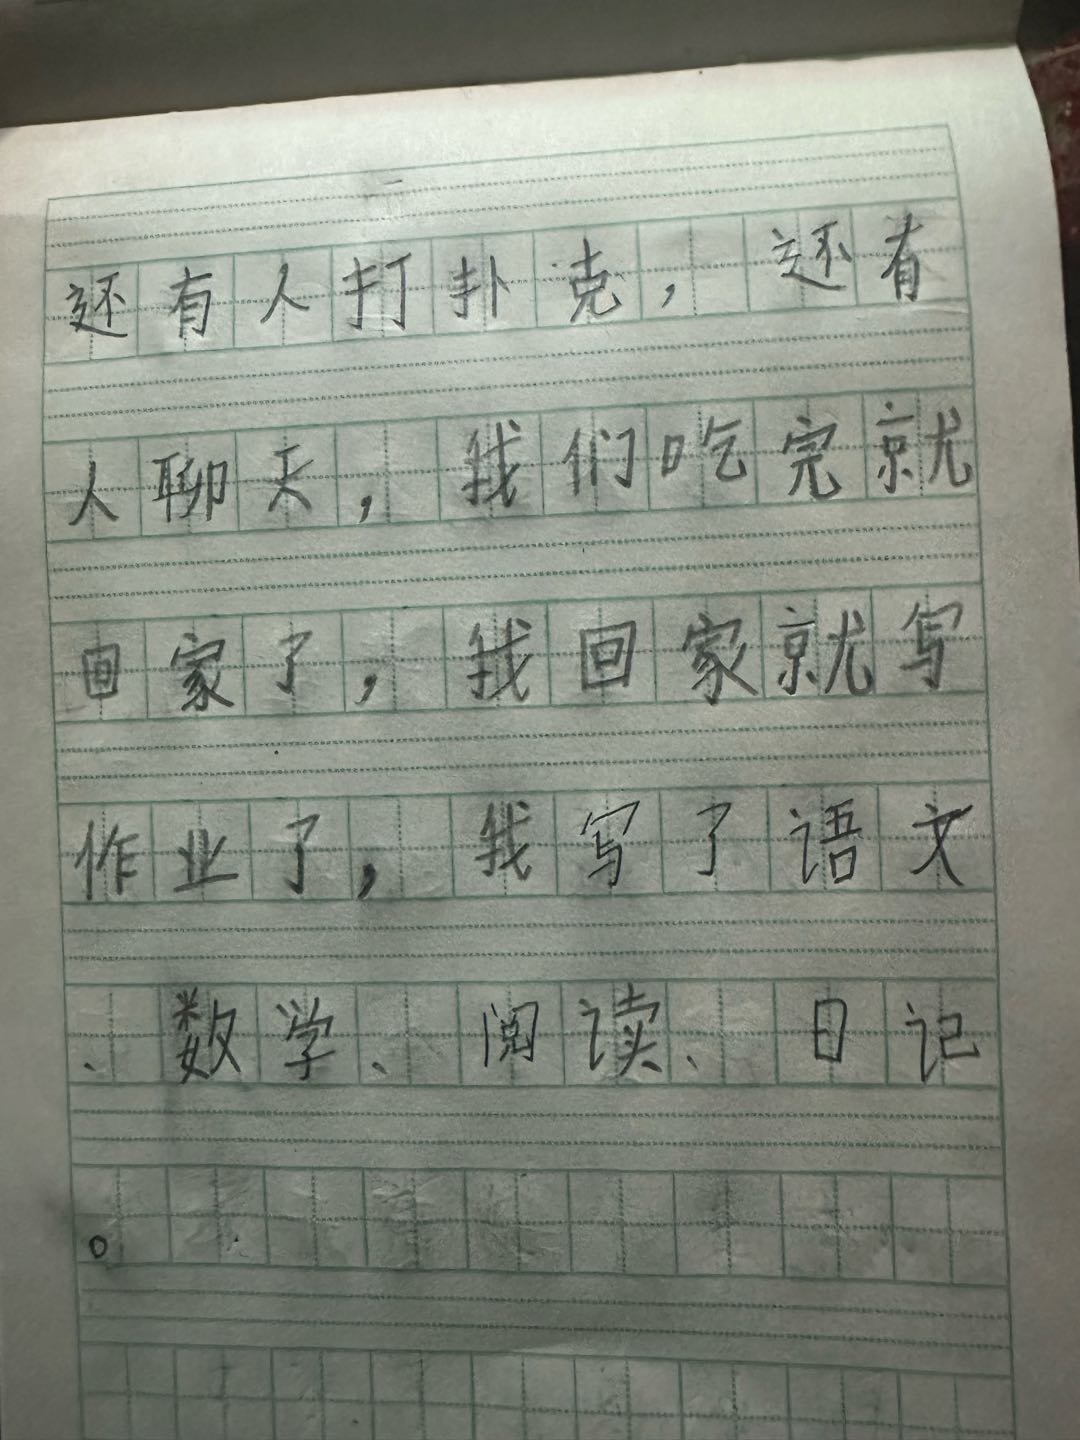 还有人打扑克，还有
人聊天，我们吃完就
回家了，我回家就写
作业了，我写了语文
、数学、阅读、日记
。